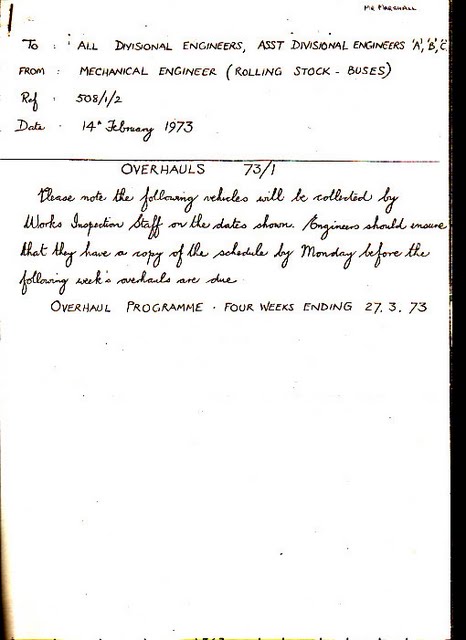 MR MARSHALL
TO : ALL DIVISIONAL ENGINEERS, ASST DIVISIONAL ENGINEERS 'A', 'B', 'C'
FROM : MECHANICAL ENGINEER (ROLLING STOCK - BUSES)
Ref : 508/1/2
Date · 14th February 1973
OVERHAULS 73/1
Please note the following vehicles will be collected by
Works Inspection Staff on the dates shown. Engineers should ensure
that they have a copy of the schedule by Monday before the
following week's overhauls are due
OVERHAUL PROGRAMME · FOUR WEEKS ENDING 27. 3. 73